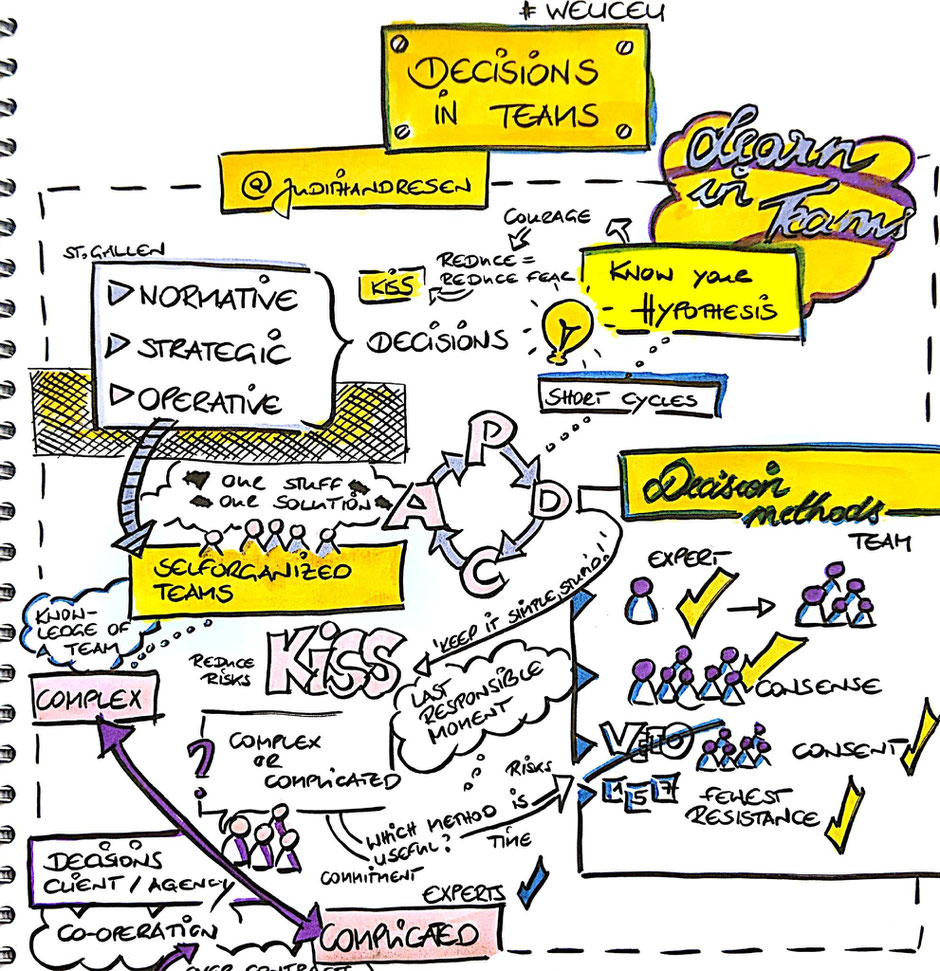 # WEUCEU
DECISIONS
IN TEAMS
@JUDITHANDRESEN
Learn
in
Teams
COURAGE
REDUCE =
REDUCE FEAR
KISS
KNOW YOUR
HYPOTHESIS
ST. GALLEN
NORMATIVE
STRATEGIC
OPERATIVE
DECISIONS
SHORT CYCLES
OUR STUFF
OUR SOLUTION
P
D
C
A
SELFORGANIZED
TEAMS
KNOW-
LEDGE OF
A TEAM
COMPLEX
REDUCE
RISKS
KISS
"KEEP IT SIMPLE, STUPID!"
LAST
RESPONSIBLE
MOMENT
?
COMPLEX
OR
COMPLICATED
WHICH METHOD IS
USEFUL?
RISKS
TIME
COMMITMENT
Decision
methods
EXPERT
TEAM
CONSENSE
VETO
CONSENT
1 5 7
FEWEST
RESISTANCE
DECISIONS
CLIENT / AGENCY
CO-OPERATION
OVER CONTRACT
EXPERTS
COMPLICATED